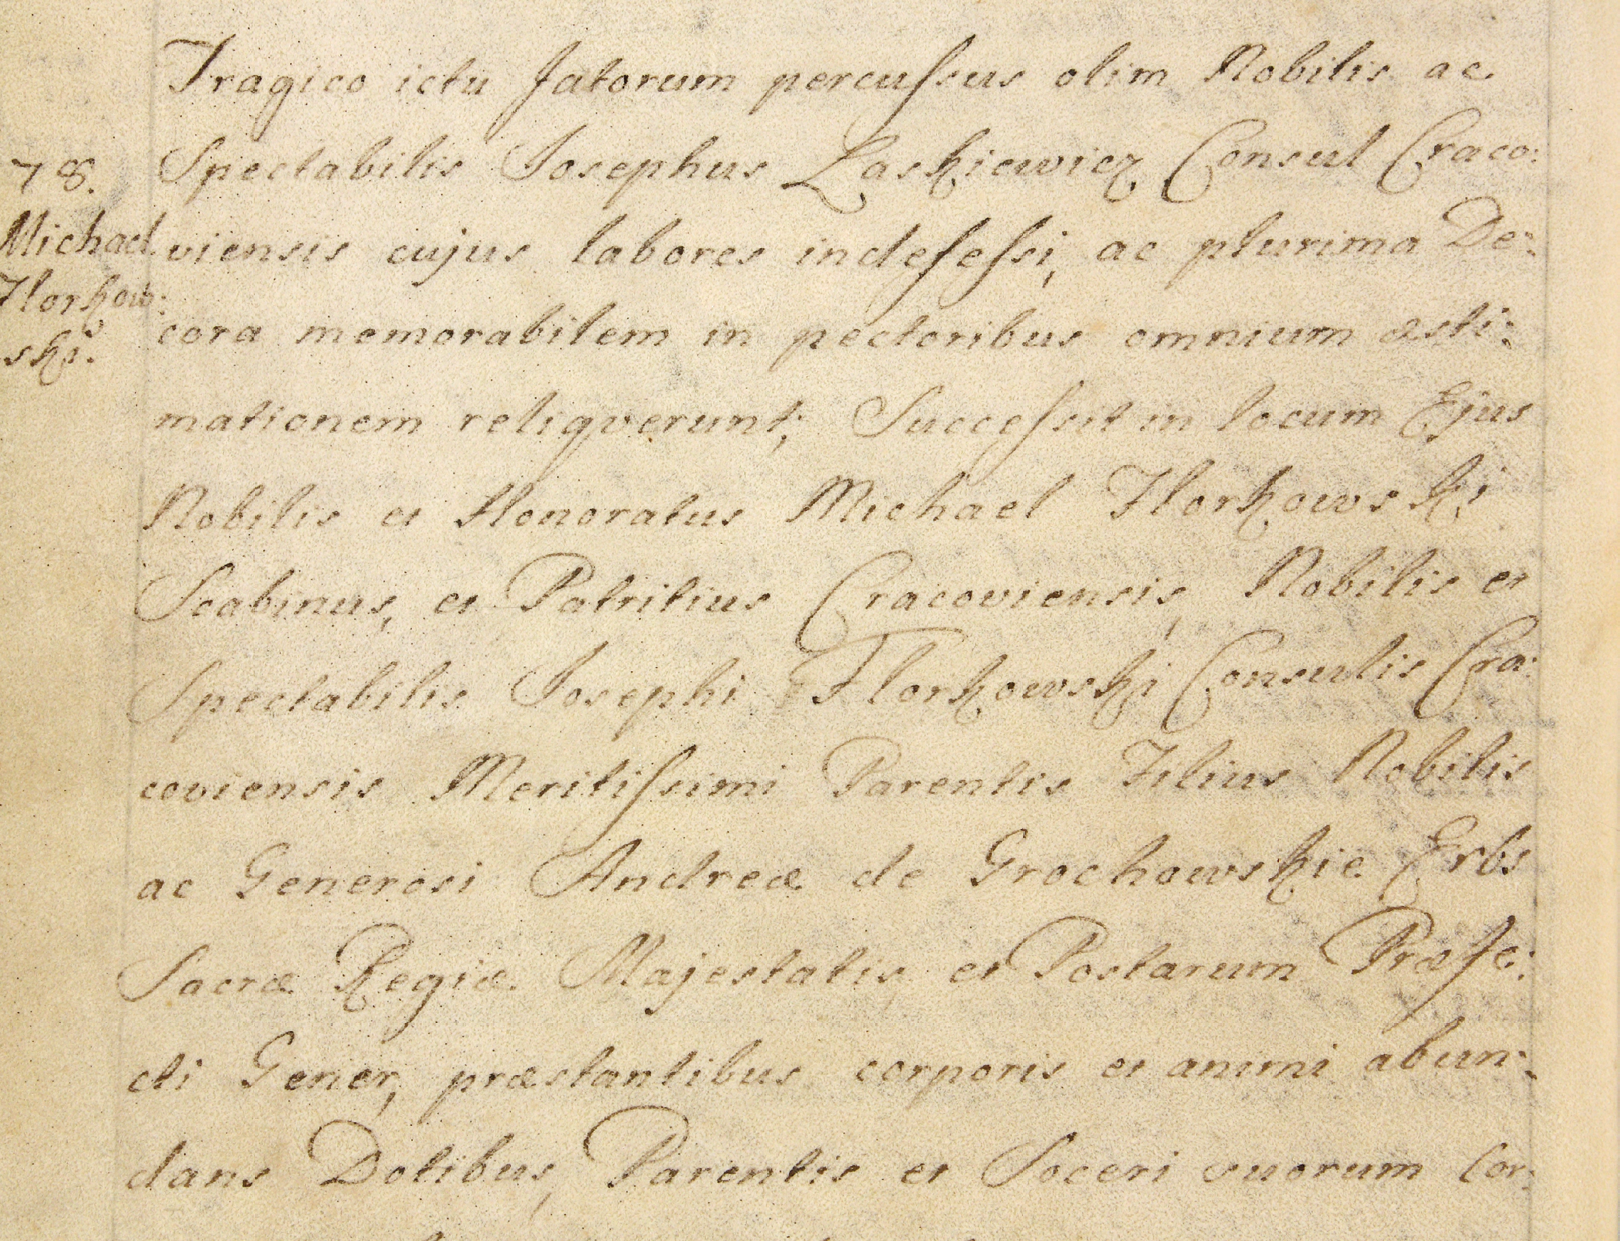 Tragico ictu fatorum percuſsus olim Nobilis ac
Spectabilis Josephus Laskiewicz Consul Craco:
78.
Michael
Florkow:
ski.
viensis cujus labores indefeſsi, ac plurima De:
cora memorabilem in pectoribus omnium æsti:
mationem reliqverunt; Succeſsit in locum Ejus
Nobilis et Honoratus Michael Florkowski
Scabinus, et Patritius Cracoviensis, Nobilis et
Spectabilis Josephi Florkowski Consulis Cra:
coviensis Meritiſsimi Parentis Filius Nobilis
ac Generosi Andreæ de Grochowskie Erbs
Sacræ Regiæ Majestatis et Postarum Præfe:
cti Gener, præstantibus corporis et animi abun:
dans Dotibus, Parentis et Soceri suorum Cor: